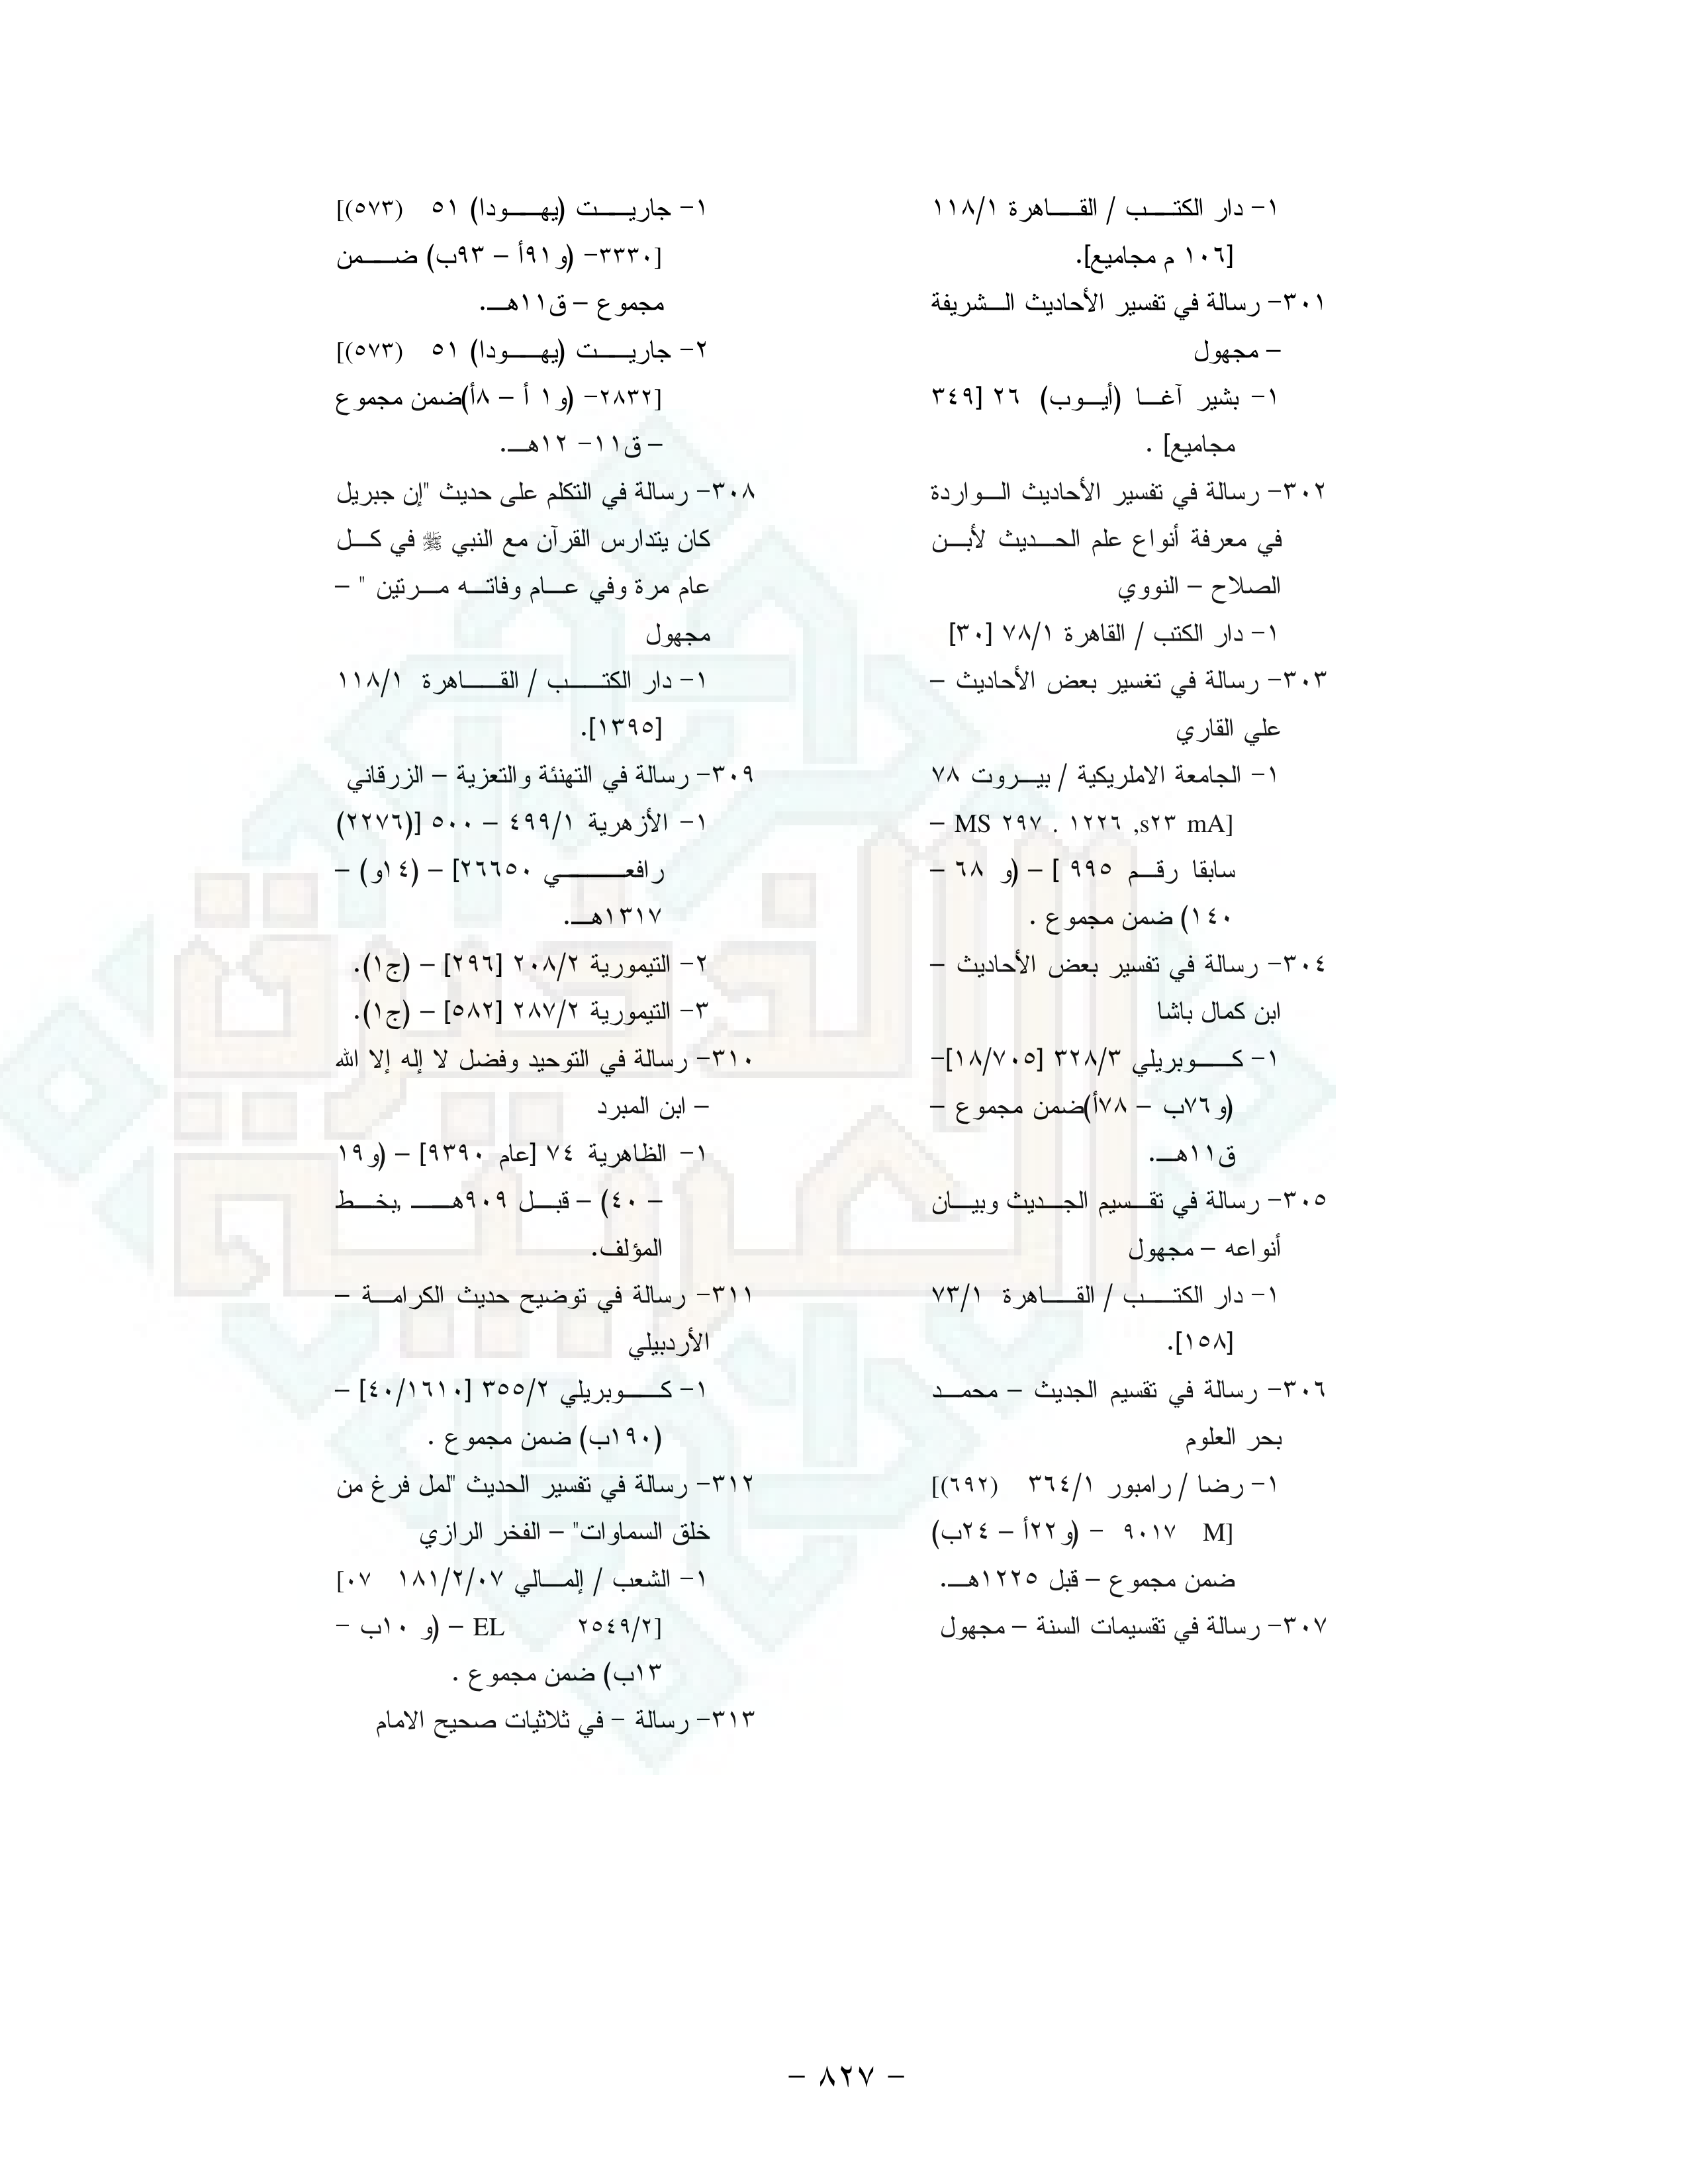 ١- دار الكتب / القاهرة ١١٨/١
[١٠٦ م مجاميع].
٣٠١- رسالة في تفسير الأحاديث الشريفة
– مجهول
١- بشير آغا (أيوب) ٢٦ [٣٤٩
مجاميع] .
٣٠٢- رسالة في تفسير الأحاديث الواردة
في معرفة أنواع علم الحديث لأبن
الصلاح – النووي
١- دار الكتب / القاهرة ٧٨/١ [٣٠]
٣٠٣- رسالة في تغسير بعض الأحاديث –
علي القاري
١- الجامعة الاملريكية / بيروت ٧٨
[MS ٢٩٧ . ١٢٢٦ ,s٢٣ mA –
سابقا رقم ٩٩٥ ] – (و ٦٨ –
١٤٠) ضمن مجموع .
٣٠٤- رسالة في تفسير بعض الأحاديث –
ابن كمال باشا
١- كوبريلي ٣٢٨/٣ [١٨/٧٠٥]-
(و٧٦ب – ٧٨أ)ضمن مجموع –
ق١١هـ.
٣٠٥- رسالة في تقسيم الجديث وبيان
أنواعه – مجهول
١- دار الكتب / القاهرة ٧٣/١
[١٥٨].
٣٠٦- رسالة في تقسيم الجديث – محمد
بحر العلوم
١- رضا / رامبور ٣٦٤/١ (٦٩٢)[
[M ٩٠١٧ - (و٢٢أ – ٢٤ب)
ضمن مجموع – قبل ١٢٢٥هـ.
٣٠٧- رسالة في تقسيمات السنة – مجهول
١- جاريت (يهودا) ٥١ (٥٧٣)[
[٣٣٣٠- (و٩١أ – ٩٣ب) ضمن
مجموع – ق١١هـ.
٢- جاريت (يهودا) ٥١ (٥٧٣)[
[٢٨٣٢- (و١ أ – ٨أ)ضمن مجموع
– ق١١- ١٢هـ.
٣٠٨- رسالة في التكلم على حديث "إن جبريل
كان يتدارس القرآن مع النبي ﷺ في كل
عام مرة وفي عام وفاته مرتين " –
مجهول
١- دار الكتب / القاهرة ١١٨/١
[١٣٩٥].
٣٠٩- رسالة في التهنئة والتعزية – الزرقاني
١- الأزهرية ٤٩٩/١ – ٥٠٠ [(٢٢٧٦)
رافعي ٢٦٦٥٠] – (١٤و) –
١٣١٧هـ.
٢- التيمورية ٢٠٨/٢ [٢٩٦] – (ج١).
٣- التيمورية ٢٨٧/٢ [٥٨٢] – (ج١).
٣١٠- رسالة في التوحيد وفضل لا إله إلا الله
– ابن المبرد
١- الظاهرية ٧٤ [عام ٩٣٩٠] – (و١٩
– ٤٠) – قبل ٩٠٩هـ ,بخط
المؤلف.
٣١١- رسالة في توضيح حديث الكرامة –
الأردبيلي
١- كوبريلي ٣٥٥/٢ [٤٠/١٦١٠] –
(١٩٠ب) ضمن مجموع .
٣١٢- رسالة في تفسير الحديث "لمل فرغ من
خلق السماوات" – الفخر الرازي
١- الشعب / إلمالي ١٨١/٢/٠٧ ٠٧]
[٢٥٤٩/٢ EL – (و ١٠ب -
١٣ب) ضمن مجموع .
٣١٣- رسالة – في ثلاثيات صحيح الامام
- ٨٢٧ -